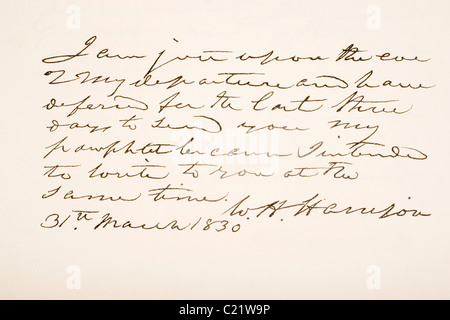 I am just upon the eve
of my departure and have
defered for the last three
days to send you my
pamphlet because I intended
to write to you at the
same time. W. H. Harrison
31th. March 1830
alamy
Image ID: C21W9P
www.alamy.com